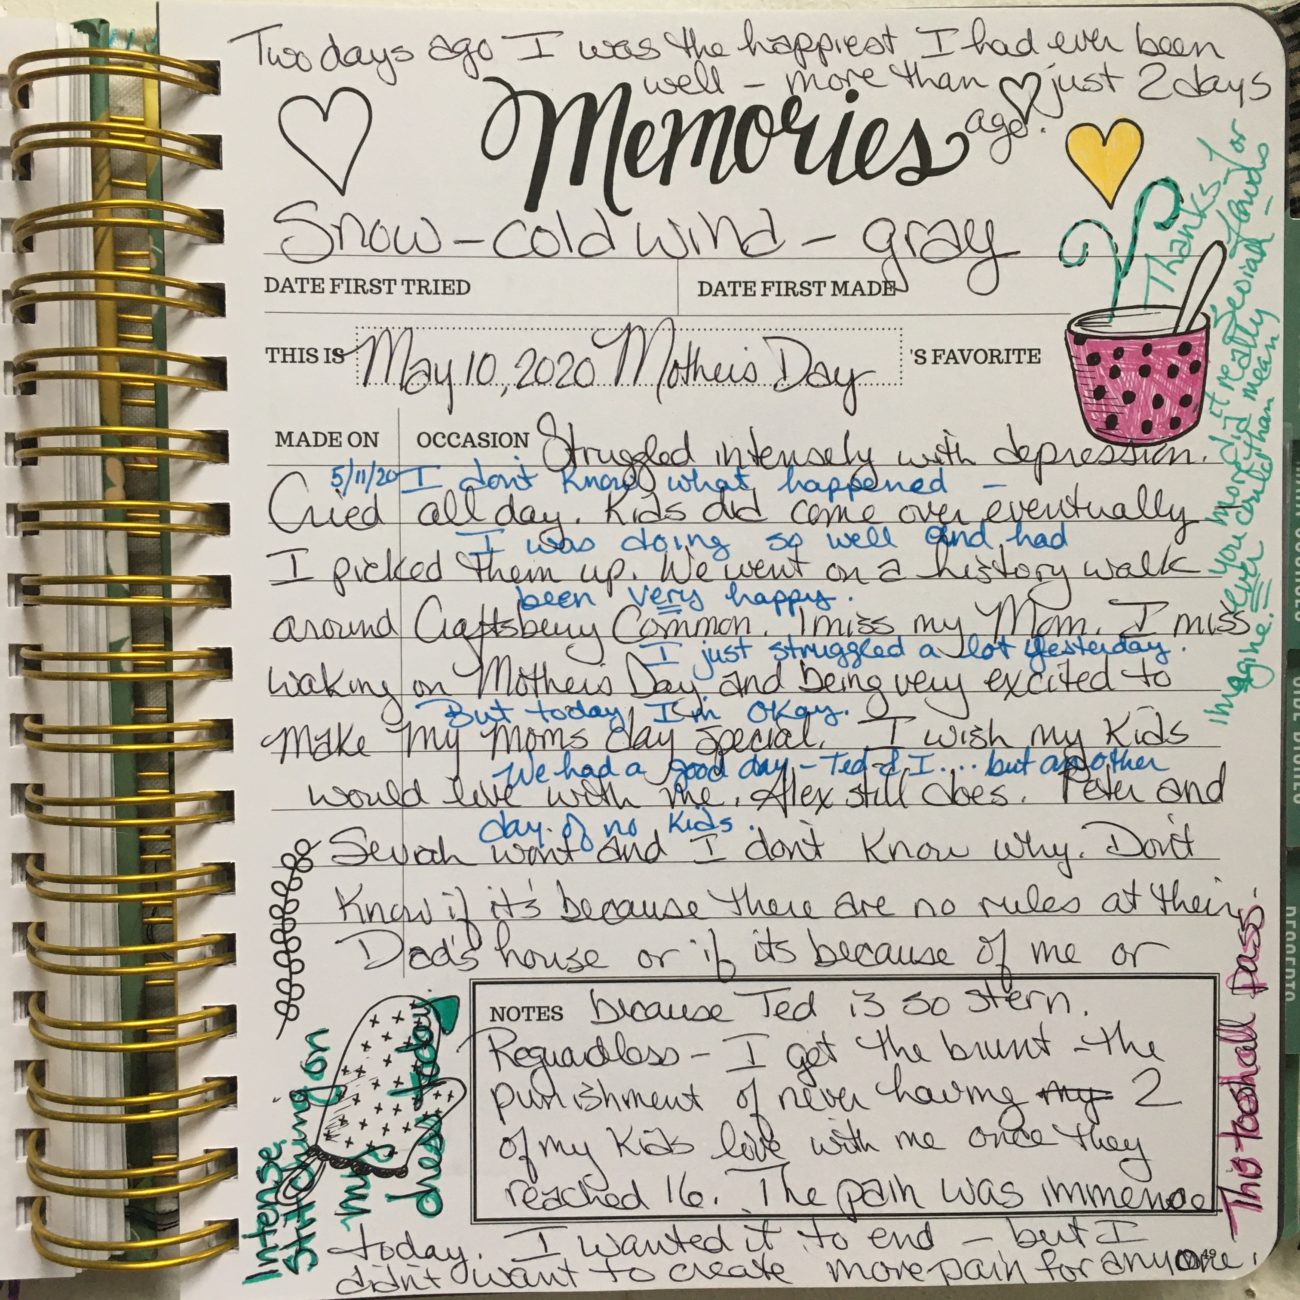 Two days ago I was the happiest I had ever been
well – more than just 2 days
ago.
Memories
Snow – cold wind – gray
DATE FIRST TRIED
DATE FIRST MADE
THIS IS May 10, 2020 Mother's Day 'S FAVORITE
MADE ON
OCCASION Struggled intensely with depression.
5/11/20 I don't know what happened –
Cried all day. Kids did come over eventually
I was doing so well and had
I picked them up. We went on a history walk
been very happy.
around Craftsbury Common. I miss my Mom. I miss
I just struggled a lot yesterday.
waking on Mother's Day and being very excited to
But today I'm okay.
make my moms day special. I wish my kids
We had a good day – Ted & I.... but another
would live with me. Alex still does. Peter and
day of no kids.
won't and I don't know why. Don't
know if it's because there are no rules at their
Dad's house or if its because of me or
NOTES because Ted is so stern.
Reguardless – I get the brunt – the
punishment of never having my 2
of my kids live with me once they
reached 16. The pain was immence
today. I wanted it to end – but I
didn't want to create more pain for anyone.
Thanks for
you more did it really
ever could than mean –
imagine.
Intense
Stitching on
my
dress today.
This too shall pass.